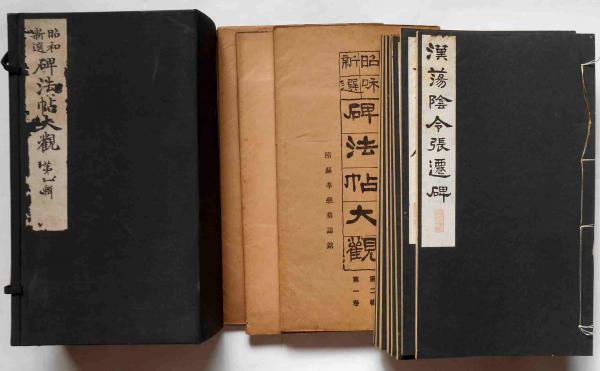 昭和
新選
碑法帖大觀
第一輯
昭和
新選
碑法帖大觀
隋蘇孝慈墓誌銘
第二輯
第一卷
漢蕩陰令張遷碑